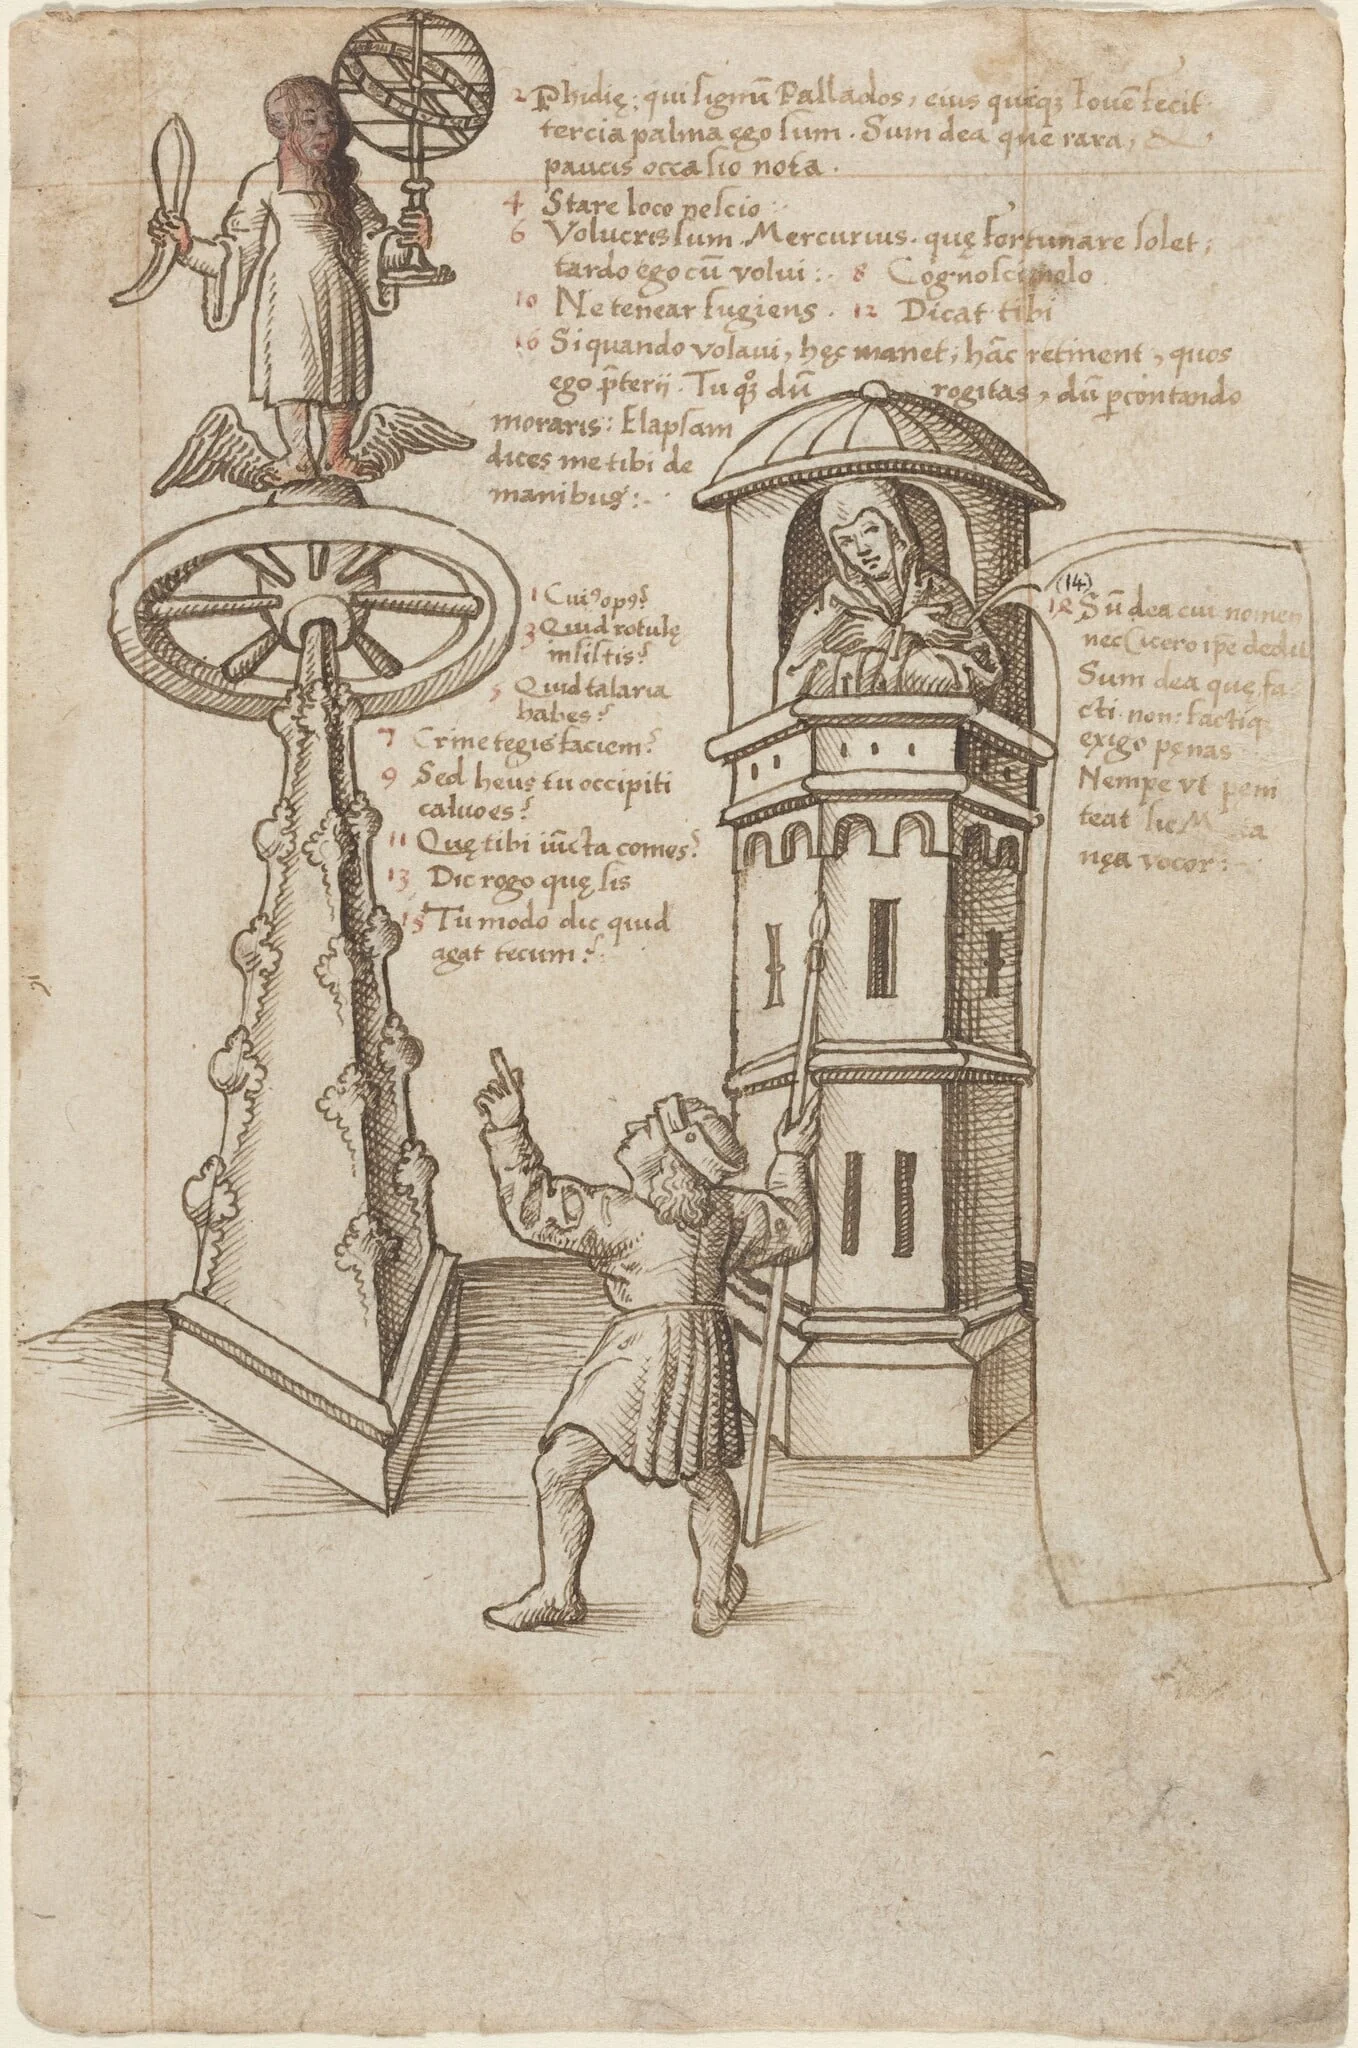 2 Phidię: qui signū Pallados, eius quiqꝫ Iouē fecit
tercia palma ego sum. Sum dea que rara, &
paucis occasio nota.
4 Stare loco nescio:
6 Volucris sum. Mercurius. quę fortunare solet;
tardo ego cū volui:. 8 Cognosci nolo
10 Ne tenear fugiens. 12 Dicat tibi
16 Si quando volaui, hęc manet; hāc retinent, quos
ego p̄terii. Tu qꝫ dū rogitas, dū ꝑcontando
moraris: Elapsam
dices me tibi de
manibus:.
1 Cuiꝰ opꝰ?
3 Quid rotulę
insistis?
5 Quid talaria
habes?
7 Crine tegis faciem?
9 Sed heus tu occipiti
caluo es?
11 Quę tibi iūcta comes?
13 Dic rogo quę sis
15 Tu modo dic quid
agat tecum?
(14)
12 Sū dea cui nomen
nec Cicero ip̄e dedit
Sum dea quę fa
cti non: factiqꝫ
exigo pęnas
Nempe vt peni
teat sic
nęa vocor: